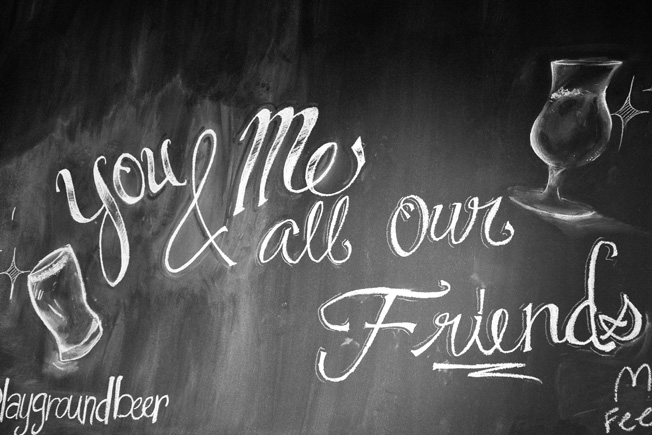 you & Me
all our
Friends
playgroundbeer